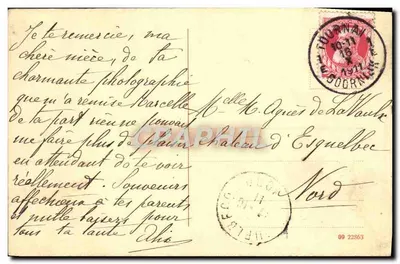 Je te remercie, ma
chère nièce, de ta
charmante photographie
que m'a remise Marcelle
de ta part rien ne pouvait
me faire plus de plaisir
en attendant de te voir
réellement. Souvenirs
affectueux à tes parents
et mille baisers pour
tous ta tante
TOURNAI
1911
DOORNIK
Melle Agnès de
Château d'Esquelbec
Nord
09 22363